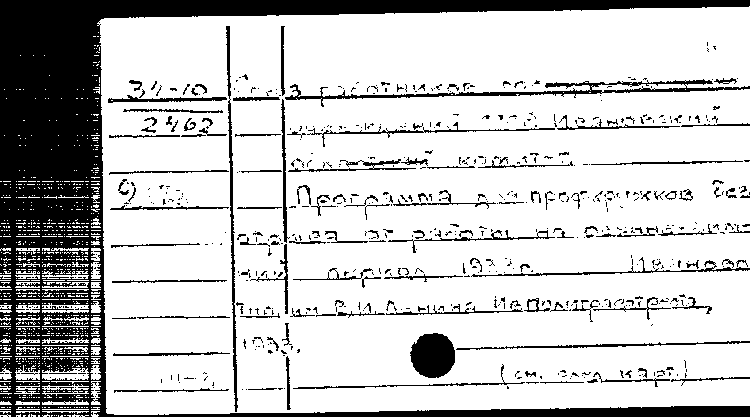 34-10 Союз работников гос
2462 учреждений СССР Ивановский
комитет.
Программа для профкружков без
отрыва от работы на осенне-зим-
ний период 1933г. Иваново
тип. им В.И.Ленина Ивполиграфтреста,
1933.
(см. след карт.)